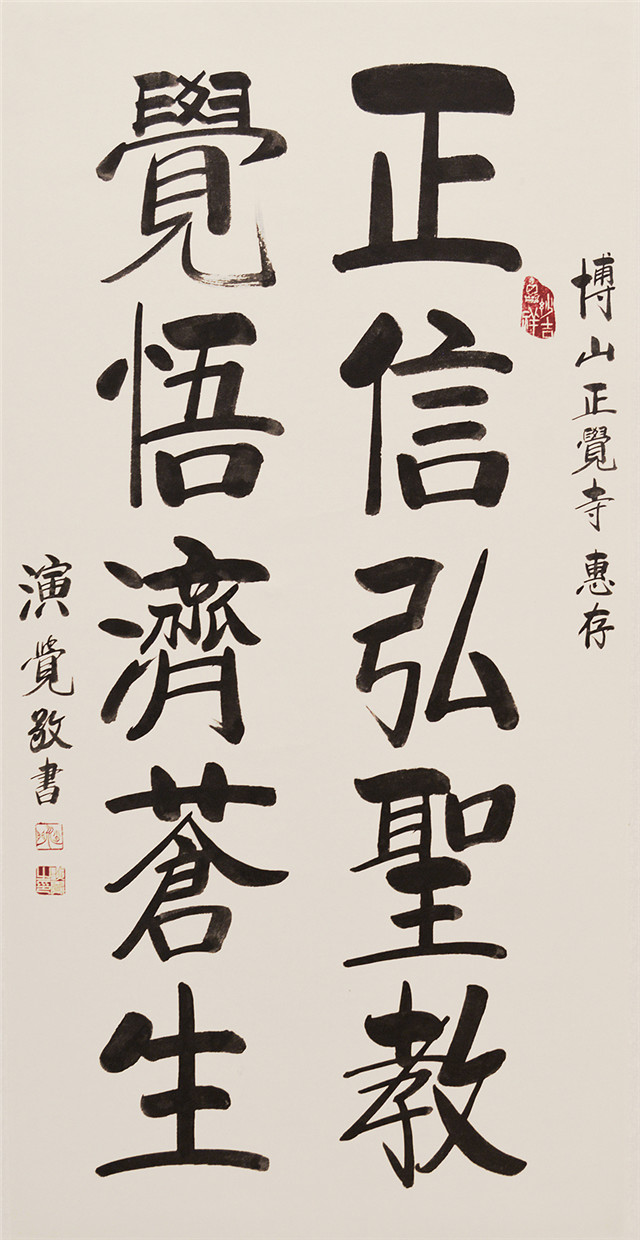 博山正覺寺惠存
正信弘聖教
覺悟濟蒼生
演覺敬書